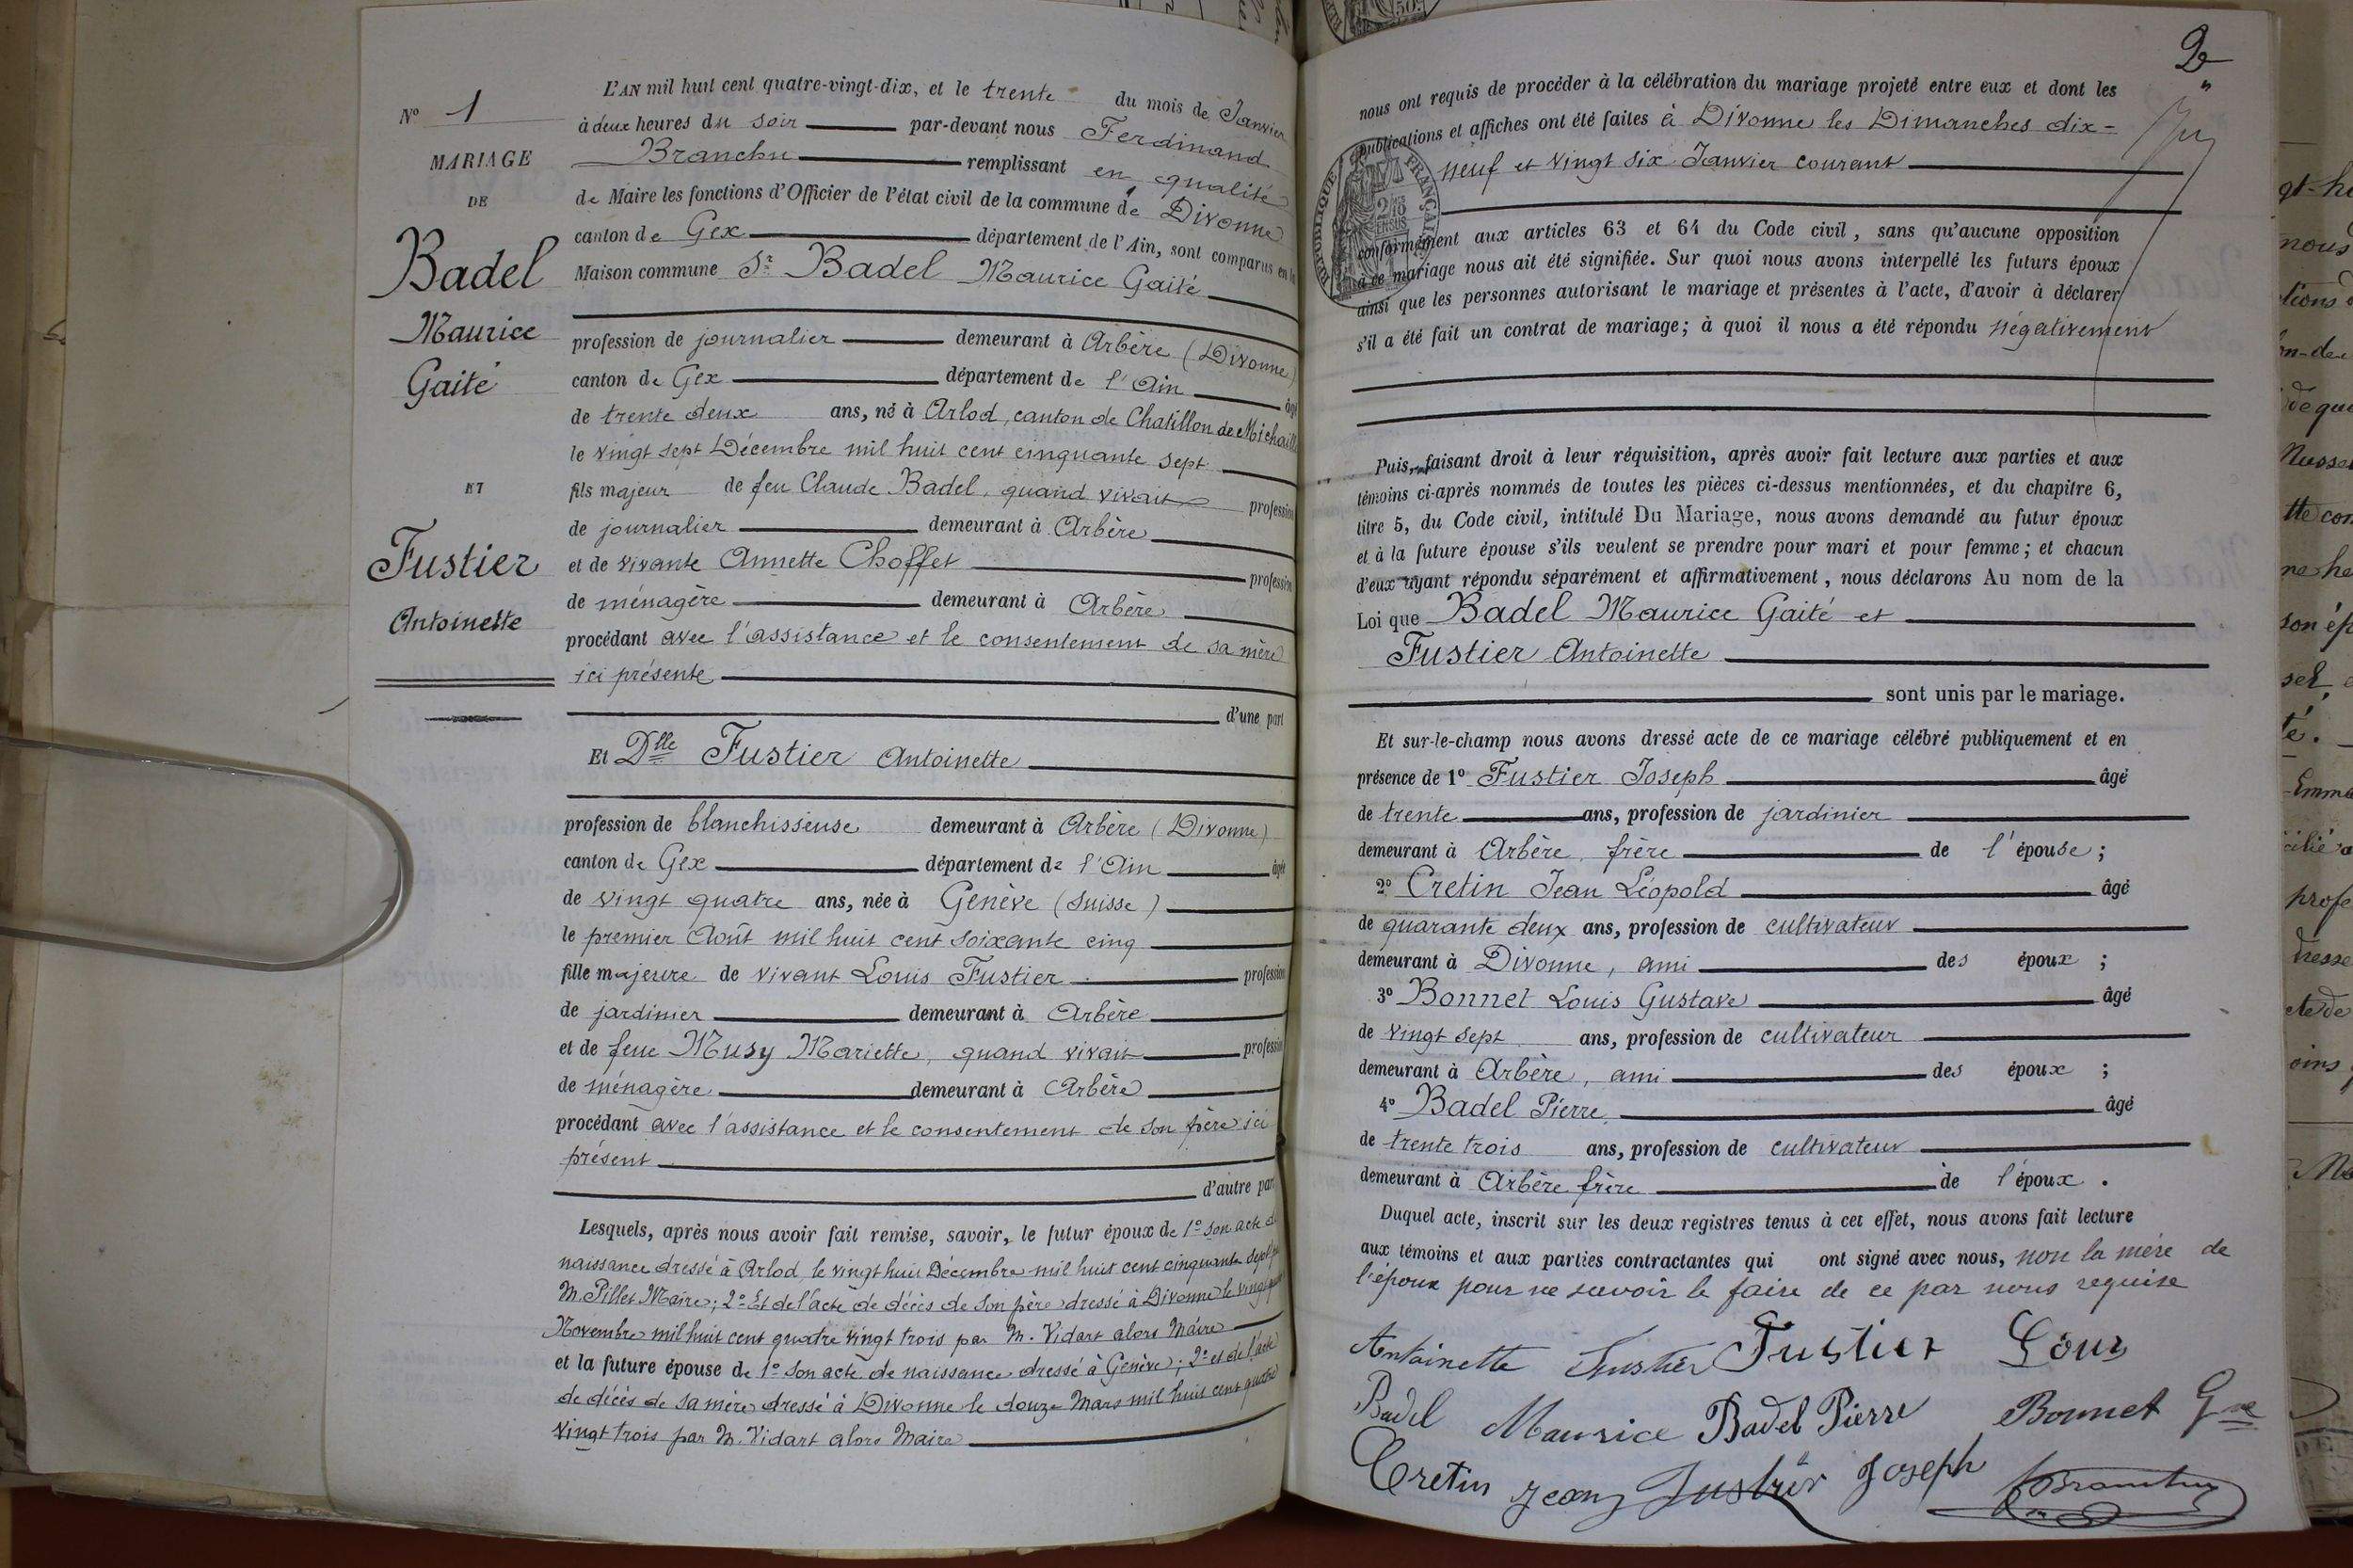 Nº 1
MARIAGE
DE
Badel
Maurice
Gaité
ET
Fustier
Antoinette
L'AN mil huit cent quatre-vingt-dix, et le trente du mois de Janvier
à deux heures du soir par-devant nous Ferdinand
Branchu remplissant en qualité
de Maire les fonctions d'Officier de l'état civil de la commune de Divonne
canton de Gex département de l'Ain, sont comparus en la
Maison commune Sr Badel Maurice Gaité
profession de journalier demeurant à Arbère (Divonne)
canton de Gex département de l'Ain âgé
de trente deux ans, né à Arlod, canton de Chatillon de Michaille
le vingt sept Décembre mil huit cent cinquante sept
fils majeur de feu Claude Badel, quand vivait profession
de journalier demeurant à Arbère
et de vivante Annette Choffet profession
de ménagère demeurant à Arbère
procédant avec l'assistance et le consentement de sa mère
ici présente
d'une part
Et Dlle Fustier Antoinette
profession de blanchisseuse demeurant à Arbère (Divonne)
canton de Gex département de l'Ain âgée
de vingt quatre ans, née à Genève (Suisse)
le premier Août mil huit cent soixante cinq
fille majeure de vivant Louis Fustier profession
de jardinier demeurant à Arbère
et de feue Musy Mariette, quand vivait profession
de ménagère demeurant à Arbère
procédant avec l'assistance et le consentement de son père ici
présent
d'autre part
Lesquels, après nous avoir fait remise, savoir, le futur époux de 1º son acte de
naissance dressé à Arlod, le vingt huit Décembre mil huit cent cinquante sept par
M. Pillet Maire; 2º Et de l'acte de décès de son père dressé à Divonne le vingt
Novembre mil huit cent quatre vingt trois par M. Vidart alors Maire
et la future épouse de 1º son acte de naissance dressé à Genève; 2º et de l'acte
de décès de sa mère dressé à Divonne le douze Mars mil huit cent quatre
vingt trois par M. Vidart alors Maire
2
nous ont requis de procéder à la célébration du mariage projeté entre eux et dont les
publications et affiches ont été faites à Divonne les Dimanches dix-
neuf et vingt six Janvier courant
conformément aux articles 63 et 64 du Code civil, sans qu'aucune opposition
à ce mariage nous ait été signifiée. Sur quoi nous avons interpellé les futurs époux
ainsi que les personnes autorisant le mariage et présentes à l'acte, d'avoir à déclarer
s'il a été fait un contrat de mariage; à quoi il nous a été répondu négativement
Puis, faisant droit à leur réquisition, après avoir fait lecture aux parties et aux
témoins ci-après nommés de toutes les pièces ci-dessus mentionnées, et du chapitre 6,
titre 5, du Code civil, intitulé Du Mariage, nous avons demandé au futur époux
et à la future épouse s'ils veulent se prendre pour mari et pour femme; et chacun
d'eux ayant répondu séparément et affirmativement, nous déclarons Au nom de la
Loi que Badel Maurice Gaité et
Fustier Antoinette
sont unis par le mariage.
Et sur-le-champ nous avons dressé acte de ce mariage célébré publiquement et en
présence de 1º Fustier Joseph âgé
de trente ans, profession de jardinier
demeurant à Arbère frère de l'épouse;
2º Cretin Jean Léopold âgé
de quarante deux ans, profession de cultivateur
demeurant à Divonne, ami des époux;
3º Bonnet Louis Gustave âgé
de vingt sept ans, profession de cultivateur
demeurant à Arbère, ami des époux;
4º Badel Pierre âgé
de trente trois ans, profession de cultivateur
demeurant à Arbère frère de l'époux.
Duquel acte, inscrit sur les deux registres tenus à cet effet, nous avons fait lecture
aux témoins et aux parties contractantes qui ont signé avec nous, non la mère de
l'époux pour ne savoir le faire de ce par nous requise
Antoinette Fustier Fustier Louis
Badel Maurice Badel Pierre Bonnet Gve
Cretin Jean Fustier Joseph Branchu